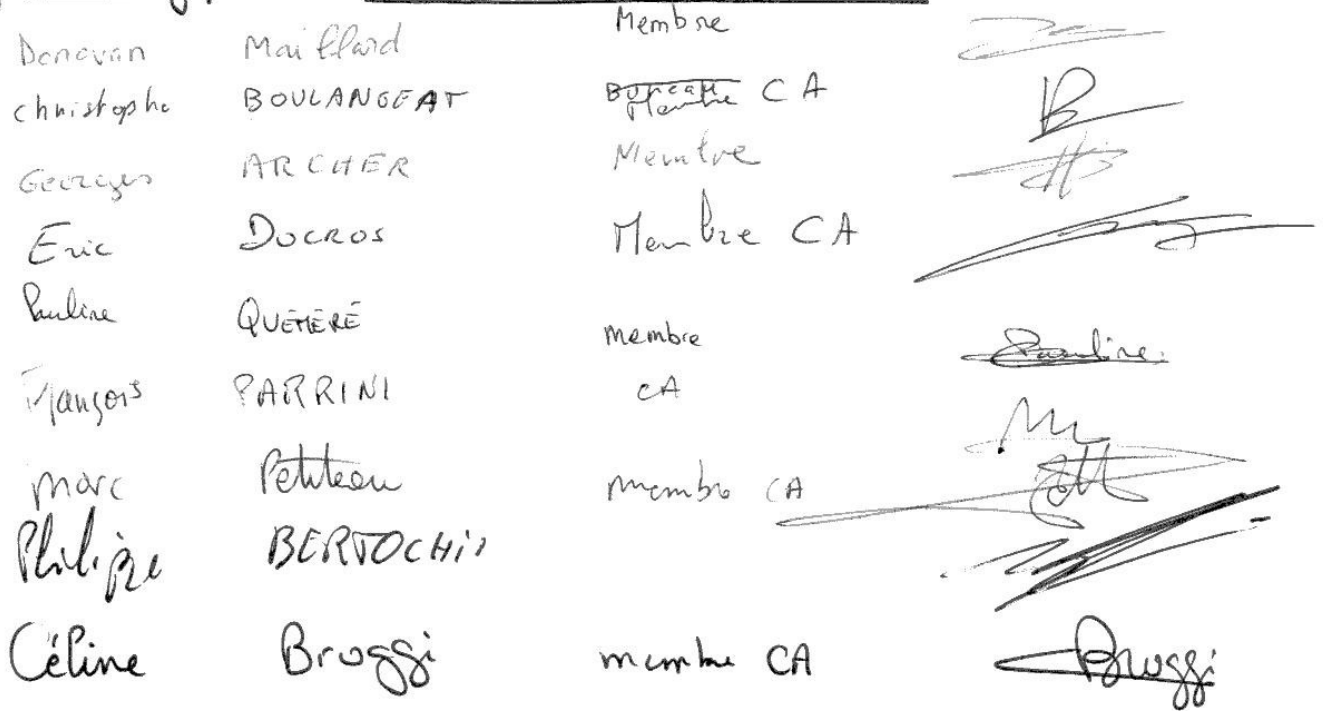 Donovan Maillard Membre
christophe BOULANGEAT Bureau Membre CA
Georges ARCHER Membre
Eric DUCROS Membre CA
Pauline QUÉMÉRÉ membre Pauline.
François PARRINI CA
Marc Petiteau membre CA
Philippe BERTOCHI
Céline Bruggi membre CA Bruggi